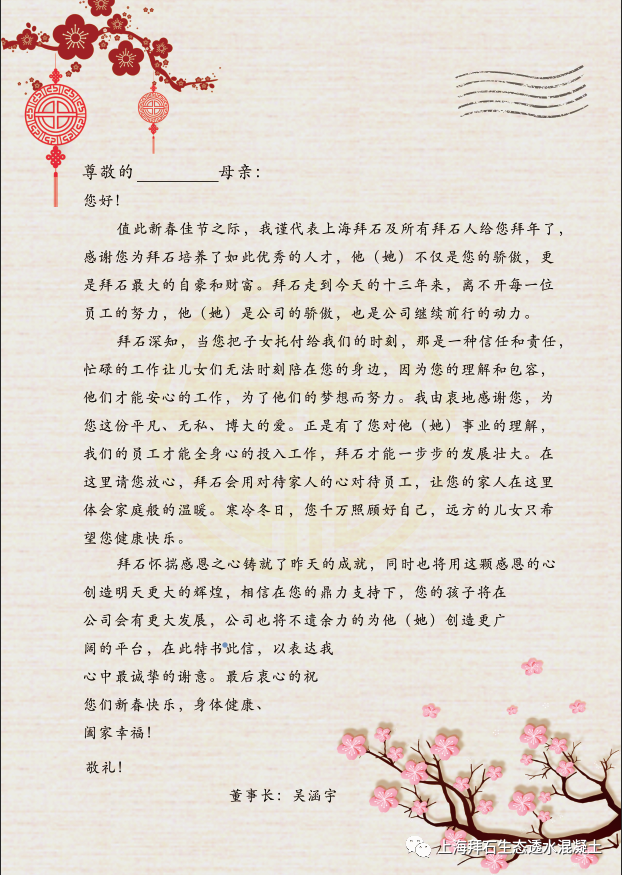 尊敬的_________母亲：
您好！
值此新春佳节之际，我谨代表上海拜石及所有拜石人给您拜年了，
感谢您为拜石培养了如此优秀的人才，他（她）不仅是您的骄傲，更
是拜石最大的自豪和财富。拜石走到今天的十三年来，离不开每一位
员工的努力，他（她）是公司的骄傲，也是公司继续前行的动力。
拜石深知，当您把子女托付给我们的时刻，那是一种信任和责任，
忙碌的工作让儿女们无法时刻陪在您的身边，因为您的理解和包容，
他们才能安心的工作，为了他们的梦想而努力。我由衷地感谢您，为
您这份平凡、无私、博大的爱。正是有了您对他（她）事业的理解，
我们的员工才能全身心的投入工作，拜石才能一步步的发展壮大。在
这里请您放心，拜石会用对待家人的心对待员工，让您的家人在这里
体会家庭般的温暖。寒冷冬日，您千万照顾好自己，远方的儿女只希
望您健康快乐。
拜石怀揣感恩之心铸就了昨天的成就，同时也将用这颗感恩的心
创造明天更大的辉煌，相信在您的鼎力支持下，您的孩子将在
公司会有更大发展，公司也将不遗余力的为他（她）创造更广
阔的平台，在此特书此信，以表达我
心中最诚挚的谢意。最后衷心的祝
您们新春快乐，身体健康、
阖家幸福！
敬礼！
董事长：吴涵宇
上海拜石生态透水混凝土